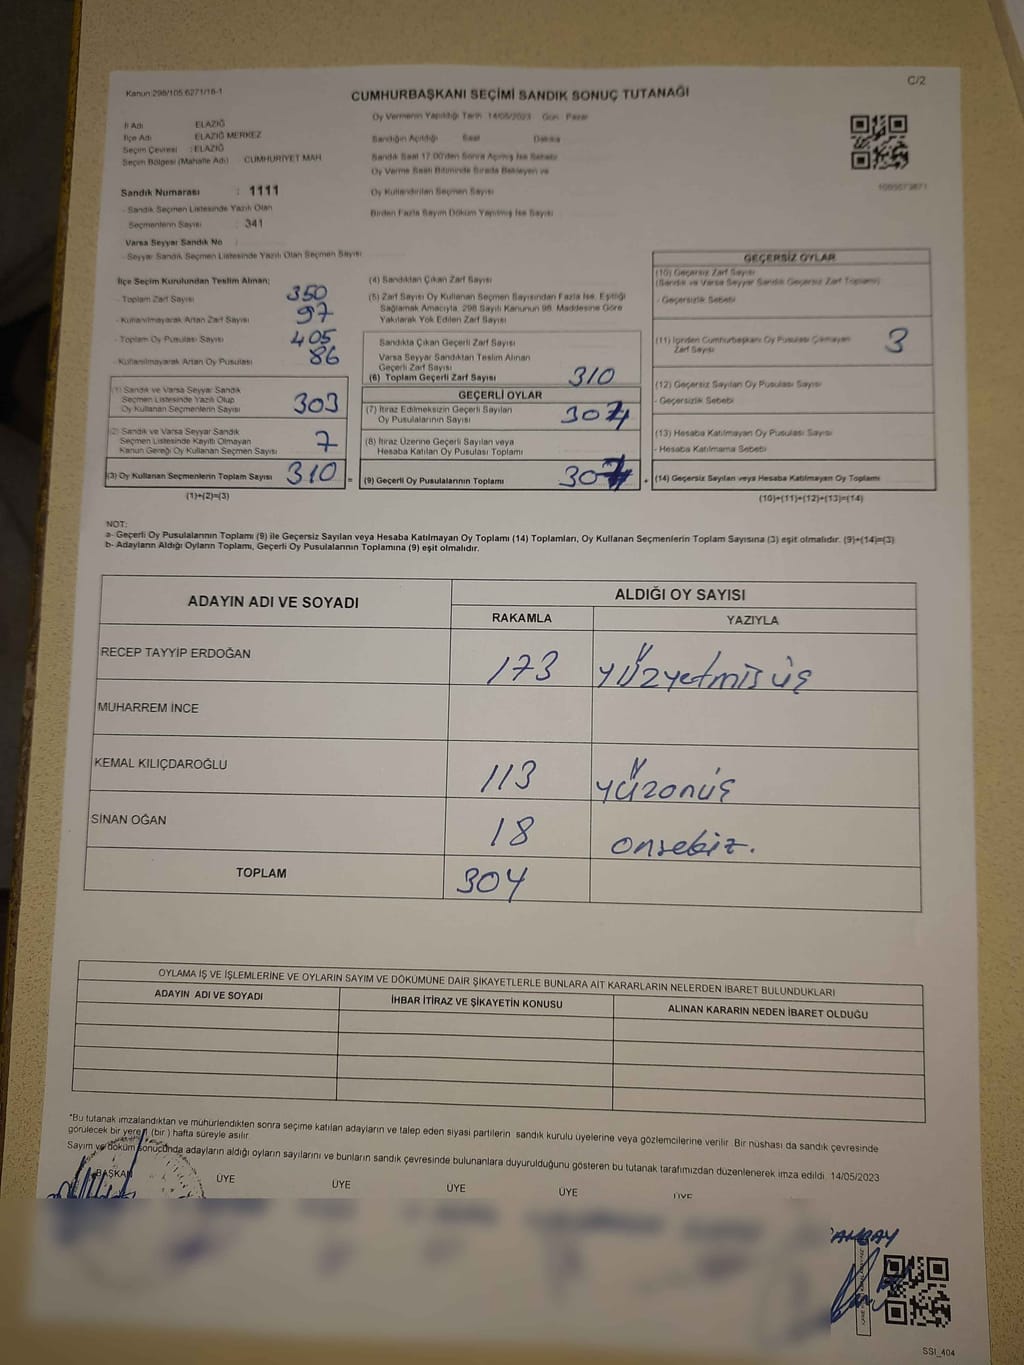 Kanun:298/105 6271/18-1
C/2
CUMHURBAŞKANI SEÇİMİ SANDIK SONUÇ TUTANAĞI
İl Adı ELAZIĞ
İlçe Adı ELAZIĞ MERKEZ
Seçim Çevresi : ELAZIĞ
Seçim Bölgesi (Mahalle Adı) CUMHURİYET MAH
Sandık Numarası : 1111
- Sandık Seçmen Listesinde Yazılı Olan
Seçmenlerin Sayısı : 341
Varsa Seyyar Sandık No
- Seyyar Sandık Seçmen Listesinde Yazılı Olan Seçmen Sayısı
Oy Vermenin Yapıldığı Tarih 14/05/2023 Gün Pazar
Sandığın Açıldığı Saat Dakika
Sandık Saat 17:00'den Sonra Açılmış İse Sebebi
Oy Verme Saati Bitiminde Sırada Bekleyen ve
Oy Kullandırılan Seçmen Sayısı
Birden Fazla Sayım Döküm Yapılmış İse Sayısı
İlçe Seçim Kurulundan Teslim Alınan;
- Toplam Zarf Sayısı 350
- Kullanılmayarak Artan Zarf Sayısı 97
- Toplam Oy Pusulası Sayısı 405
- Kullanılmayarak Artan Oy Pusulası 86
(1) Sandık ve Varsa Seyyar Sandık
Seçmen Listesinde Yazılı Olup
Oy Kullanan Seçmenlerin Sayısı 303
(2) Sandık ve Varsa Seyyar Sandık
Seçmen Listesinde Kayıtlı Olmayan
Kanun Gereği Oy Kullanan Seçmen Sayısı 7
(3) Oy Kullanan Seçmenlerin Toplam Sayısı 310 =
(1)+(2)=(3)
(4) Sandıktan Çıkan Zarf Sayısı
(5) Zarf Sayısı Oy Kullanan Seçmen Sayısından Fazla İse, Eşitliği
Sağlamak Amacıyla, 298 Sayılı Kanunun 98. Maddesine Göre
Yakılarak Yok Edilen Zarf Sayısı
Sandıkta Çıkan Geçerli Zarf Sayısı
Varsa Seyyar Sandıktan Teslim Alınan
Geçerli Zarf Sayısı
(6) Toplam Geçerli Zarf Sayısı 310
GEÇERLİ OYLAR
(7) İtiraz Edilmeksizin Geçerli Sayılan
Oy Pusulalarının Sayısı
(8) İtiraz Üzerine Geçerli Sayılan veya
Hesaba Katılan Oy Pusulası Toplamı
(9) Geçerli Oy Pusulalarının Toplamı +
GEÇERSİZ OYLAR
(10) Geçersiz Zarf Sayısı
(Sandık ve Varsa Seyyar Sandık Geçersiz Zarf Toplamı)
- Geçersizlik Sebebi
(11) İçinden Cumhurbaşkanı Oy Pusulası Çıkmayan
Zarf Sayısı 3
(12) Geçersiz Sayılan Oy Pusulası Sayısı
- Geçersizlik Sebebi
(13) Hesaba Katılmayan Oy Pusulası Sayısı
- Hesaba Katılmama Sebebi
(14) Geçersiz Sayılan veya Hesaba Katılmayan Oy Toplamı
(10)+(11)+(12)+(13)=(14)
NOT:
a- Geçerli Oy Pusulalarının Toplamı (9) ile Geçersiz Sayılan veya Hesaba Katılmayan Oy Toplamı (14) Toplamları, Oy Kullanan Seçmenlerin Toplam Sayısına (3) eşit olmalıdır. (9)+(14)=(3)
b- Adayların Aldığı Oyların Toplamı, Geçerli Oy Pusulalarının Toplamına (9) eşit olmalıdır.
ADAYIN ADI VE SOYADI
ALDIĞI OY SAYISI
RAKAMLA YAZIYLA
RECEP TAYYİP ERDOĞAN 173 yüzyetmiş üç
MUHARREM İNCE
KEMAL KILIÇDAROĞLU 113 yüzonüç
SİNAN OĞAN 18 onsekiz.
TOPLAM 304
OYLAMA İŞ VE İŞLEMLERİNE VE OYLARIN SAYIM VE DÖKÜMÜNE DAİR ŞİKAYETLERLE BUNLARA AİT KARARLARIN NELERDEN İBARET BULUNDUKLARI
ADAYIN ADI VE SOYADI İHBAR İTİRAZ VE ŞİKAYETİN KONUSU ALINAN KARARIN NEDEN İBARET OLDUĞU
*Bu tutanak imzalandıktan ve mühürlendikten sonra seçime katılan adayların ve talep eden siyasi partilerin sandık kurulu üyelerine veya gözlemcilerine verilir. Bir nüshası da sandık çevresinde
görülecek bir yere 1 (bir ) hafta süreyle asılır.
Sayım ve döküm sonucunda adayların aldığı oyların sayılarını ve bunların sandık çevresinde bulunanlara duyurulduğunu gösteren bu tutanak tarafımızdan düzenlenerek imza edildi. 14/05/2023
BAŞKAN ÜYE ÜYE ÜYE ÜYE ÜYE
SSI_404